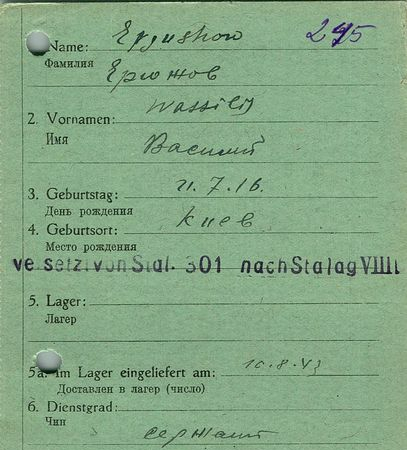 Name: 295
Фамилия Ерюжов
2. Vornamen: Wassilij
Имя Василий
3. Geburtstag: 21.7.16.
День рождения
4. Geburtsort: Киев
Место рождения
ve setzt von Stal. 301 nach Stalag VIIII
5. Lager:
Лагер
5a. Im Lager eingeliefert am: 10.8.43
Доставлен в лагер (число)
6. Dienstgrad:
Чин сержант